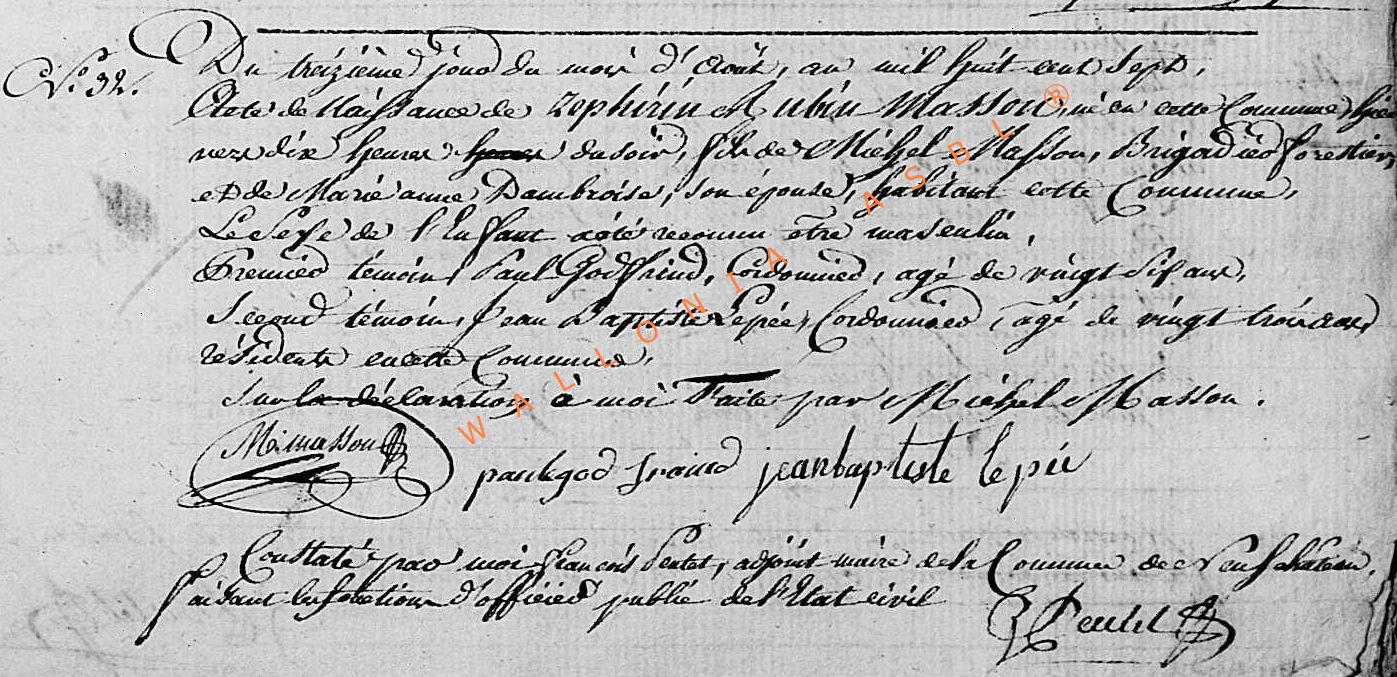 No. 32.
Du treizième jour du mois d'Août, an mil huit cent sept,
Acte de Naissance de Zephirin Aubin Masson, né en cette Commune, hier
vers dix heures du soir, fils de Michel Masson, Brigadier forestier,
et de Marie anne Dambroise, son épouse, habitant cette Commune,
Le Sexe de l'Enfant a été reconnu être masculin,
Premier témoin, Paul Godfrind, Cordonnier, agé de vingt six ans,
Second témoin, Jean Baptiste Lepée, Cordonnier, agé de vingt trois ans,
résidents en cette Commune,
Sur la déclaration à moi Faite par Michel Masson.
M: masson
paul god fraind jean baptiste le pée
Constaté par moi françois adjoint maire de la Commune de Neufchateau,
faisant les fonctions d'officier public de l'Etat civil
WALLONIA ASBL ®